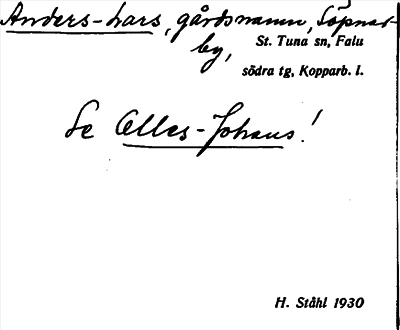 Anders-Lars, gårdsnamn, Söpnar-
by, St. Tuna sn, Falu
södra tg, Kopparb. l.
Se Olles-Johans!
H. Ståhl 1930